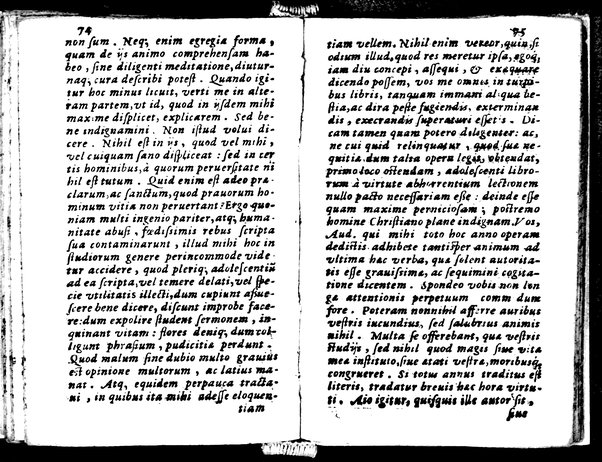 74
non sum. Neq; enim egregia forma,
quam de ijs animo comprehensam ha-
beo, sine diligenti meditatione, diutur-
naq; cura describi potest. Quando igi
tur hoc minus licuit, verti me in alte-
ram partem, vt id, quod in ijsdem mihi
maxime displicet, explicarem. Sed be-
ne indignamini. Non istud volui di-
cere. Nihil est in ijs, quod vel mihi,
vel cuiquam sano displiceat: sed in cer
tis hominibus, à quorum peruersitate nī
hil est tutum. Quid enim est adeo præ
clarum, ac sanctum, quod prauorum ho-
minum vitia non peruertant? Ergo quo-
niam multi ingenio pariter, atq; huma-
nitate abusi, fœdissimis rebus scripta
sua contaminarunt, illud mihi hoc in
studiorum genere perincommode vide-
tur accidere, quod pleriq; adolescentiū
ad ea scripta, vel temere delati, vel spe-
cie vtilitatis illecti, dum cupiunt assue-
scere bene dicere, discunt improbe face-
re: dum expolire student sermonem, in-
quinant vitam: flores deniq; dum col-
ligunt phrasium, pudicitia perdunt.
Quod malum sine dubio multo grauius
est opinione multorum, ac latius ma-
nat. Atq; equidem perpauca tracta-
ui, in quibus ita mihi adesse eloquen-
tiam
75
tiam vellem. Nihil enim vereor, quin, si
odium illud, quod res meretur ipsa, egoq;
iam diu concepi, assequi, & exæquare
dicendo possem, vos me omnis in turpi-
bus libris, tanquam immani aliqua be-
stia, ac dira peste fugiendis, exterminan
dis, execrandis superaturi essetis. Di-
cam tamen quam potero diligenter: ac,
ne cui quid relinquatur, quod sua ne-
quitia dum talia opera legit, obtendat,
primo loco ostendam, adolescenti libro-
rum à virtute abhorrentium lectionem
nullo pacto necessariam esse: deinde esse
quam maxime perniciosam; postremo
homine Christiano plane indignam. Vos,
Aud. qui mihi toto hoc anno operam
dedistis adhibete tantisper animum ad
vltima hac verba, quæ solent autorita-
tis esse grauissima, ac sequimini cogita-
tione dicentem. Spondeo vobis non lon
ga attentionis perpetuum comm dum
fore. Poteram nonnihil afferre auribus
vestris iucundius, sed salubrius animis
nihil. Multa se offerebant, quæ vestris
studijs, sed nihil quod magis siue vitæ
mea instituto, siue ætati vestra, moribusq;
congrueret. Si totus annus traditus est
literis, tradatur breuis hac hora virtu-
ti. Aio igitur, quisquis ille autor sit,
siue